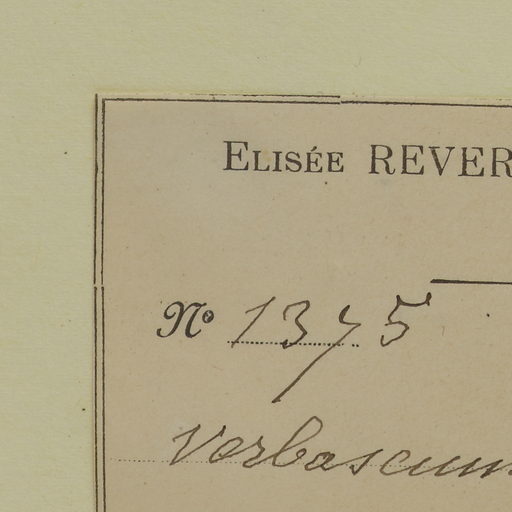 Elisée REVER
Nº 1375
Verbascum